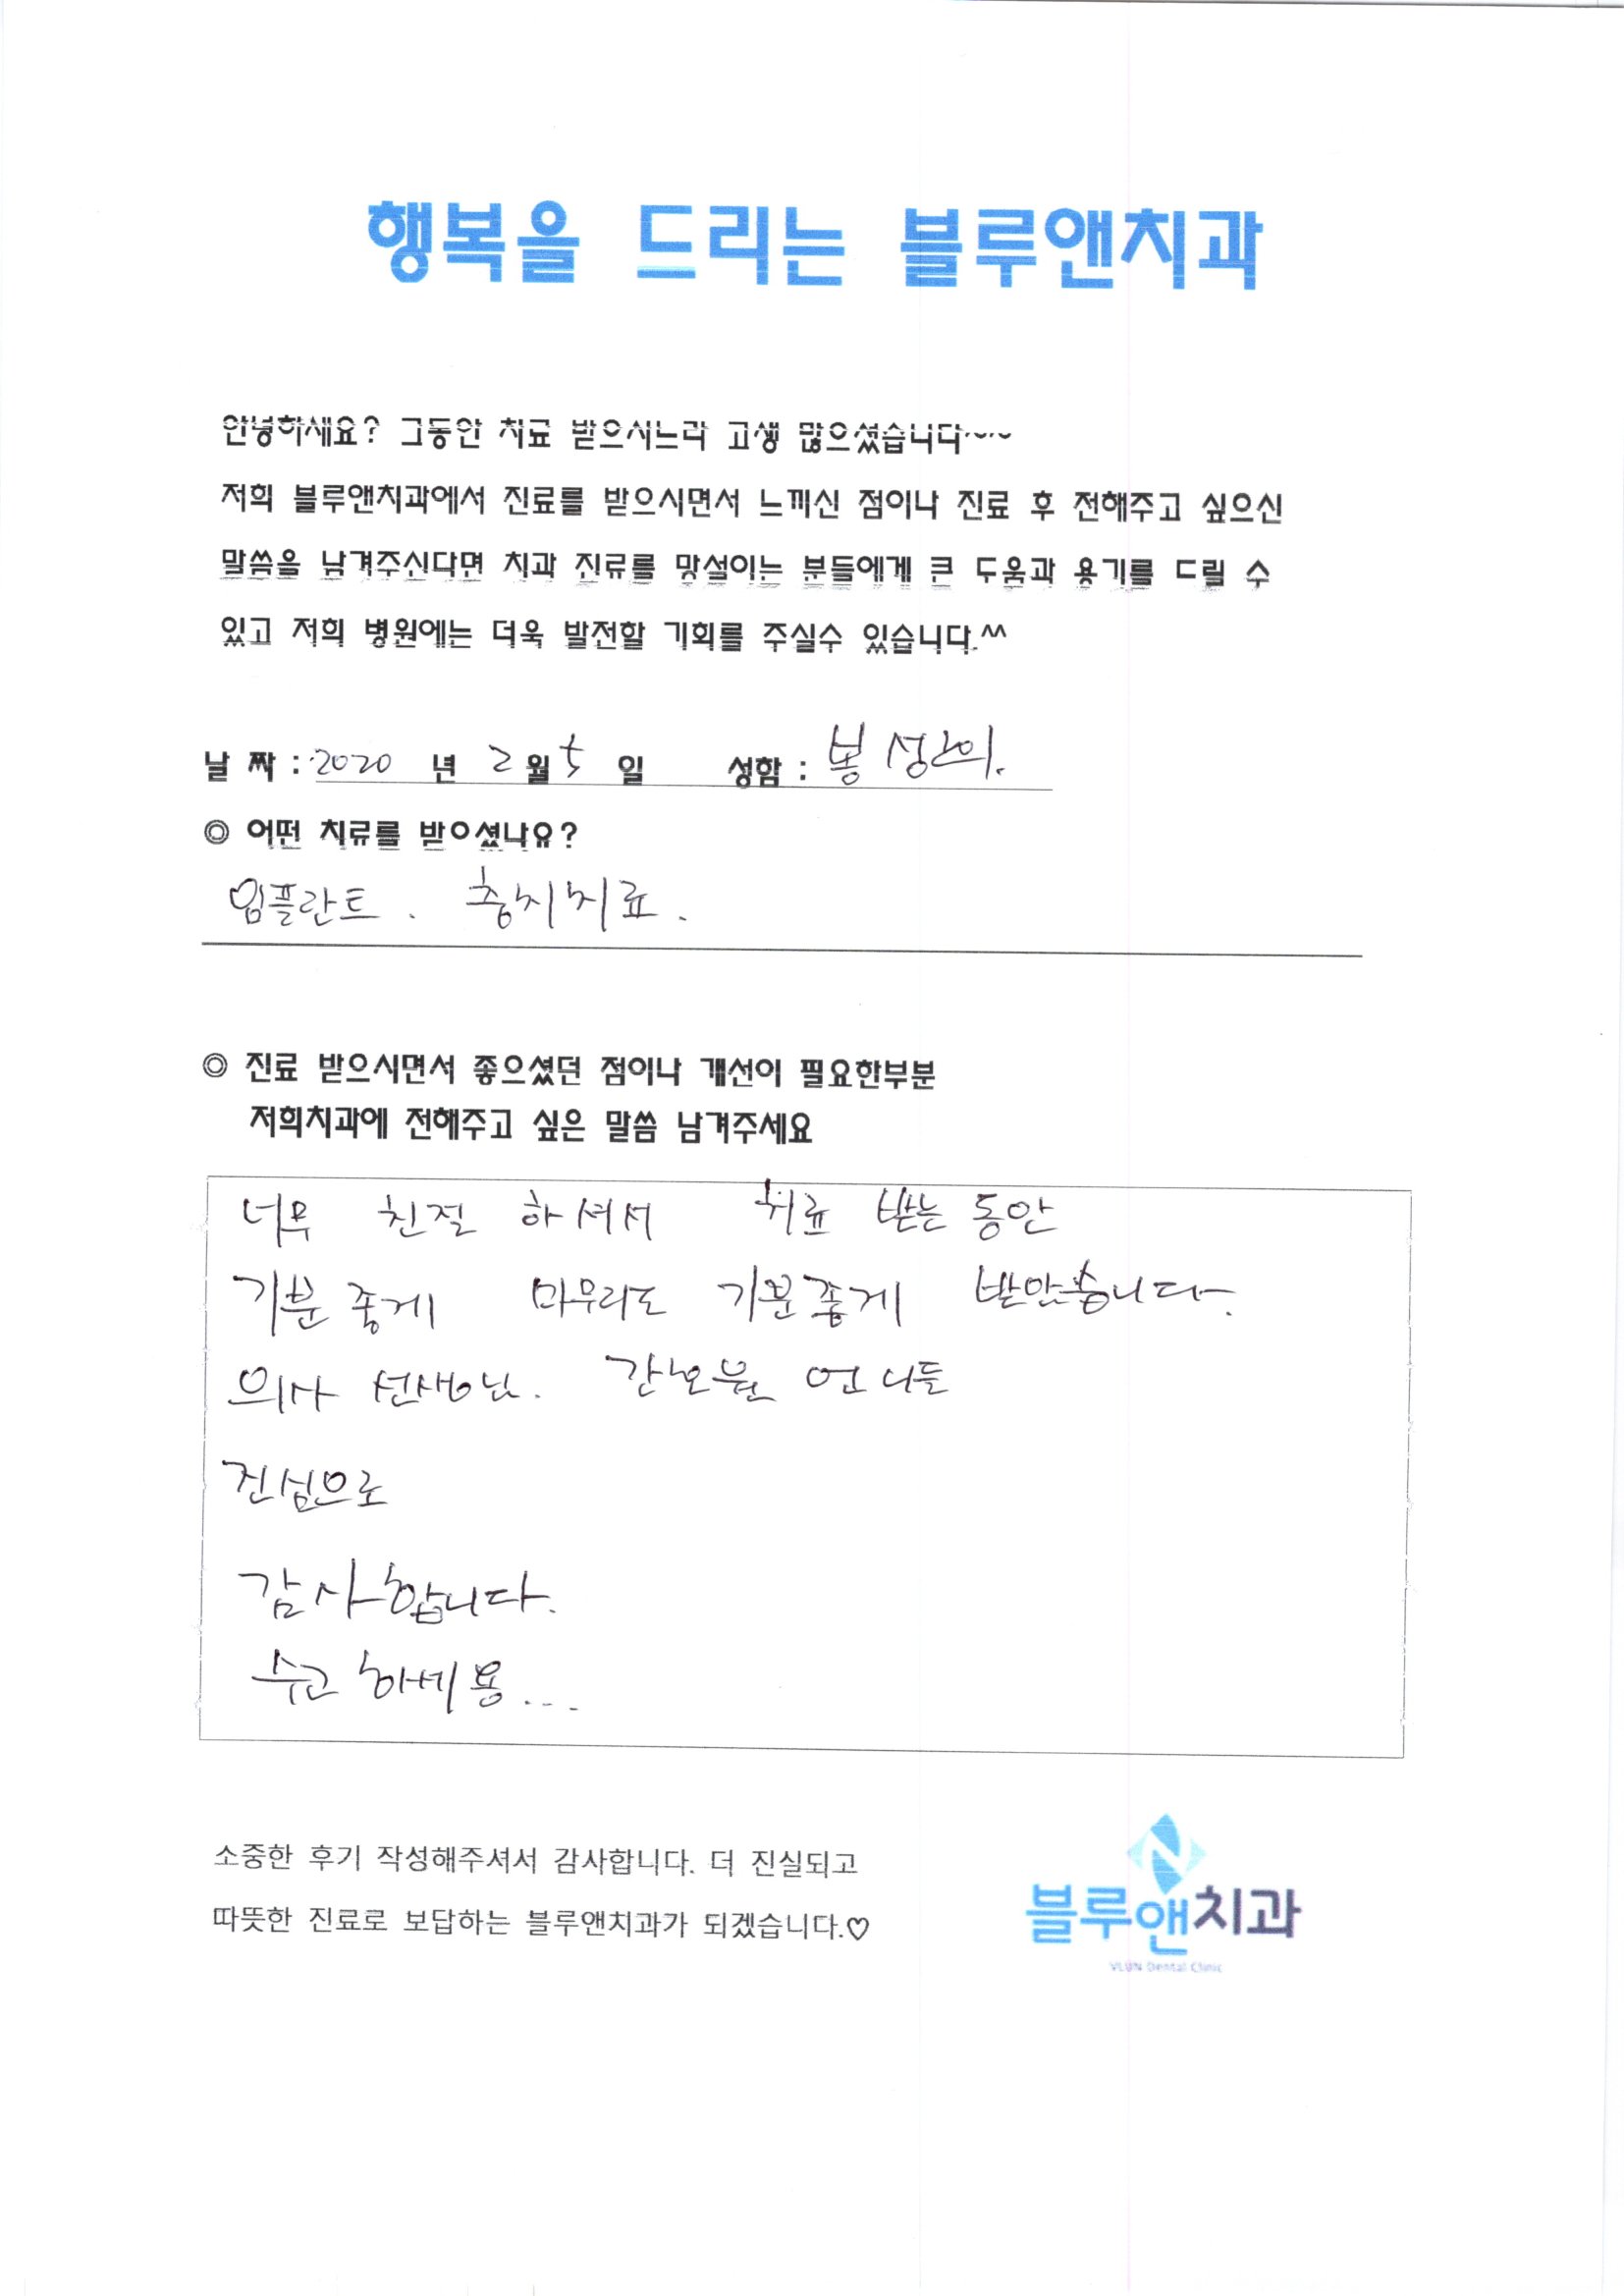 행복을 드리는 블루앤치과
안녕하세요? 그동안 치료 받으시느라 고생 많으셨습니다~~
저희 블루앤치과에서 진료를 받으시면서 느끼신 점이나 진료 후 전해주고 싶으신
말씀을 남겨주신다면 치과 진료를 망설이는 분들에게 큰 도움과 용기를 드릴 수
있고 저희 병원에는 더욱 발전할 기회를 주실수 있습니다.^^
날 짜 : 2020 년 2 월 5 일 성함 : 봉성의.
◎ 어떤 치료를 받으셨나요?
임플란트. 충치치료.
◎ 진료 받으시면서 좋으셨던 점이나 개선이 필요한부분
저희치과에 전해주고 싶은 말씀 남겨주세요
너무 친절 하셔서 치료 받는 동안
기분 좋게 마무리도 기분좋게 받았습니다.
의사 선생님. 간호원 언니들
진심으로
감사합니다.
수고 하세용...
소중한 후기 작성해주셔서 감사합니다. 더 진실되고
따뜻한 진료로 보답하는 블루앤치과가 되겠습니다.♡
블루앤치과
VLUN Dental Clinic